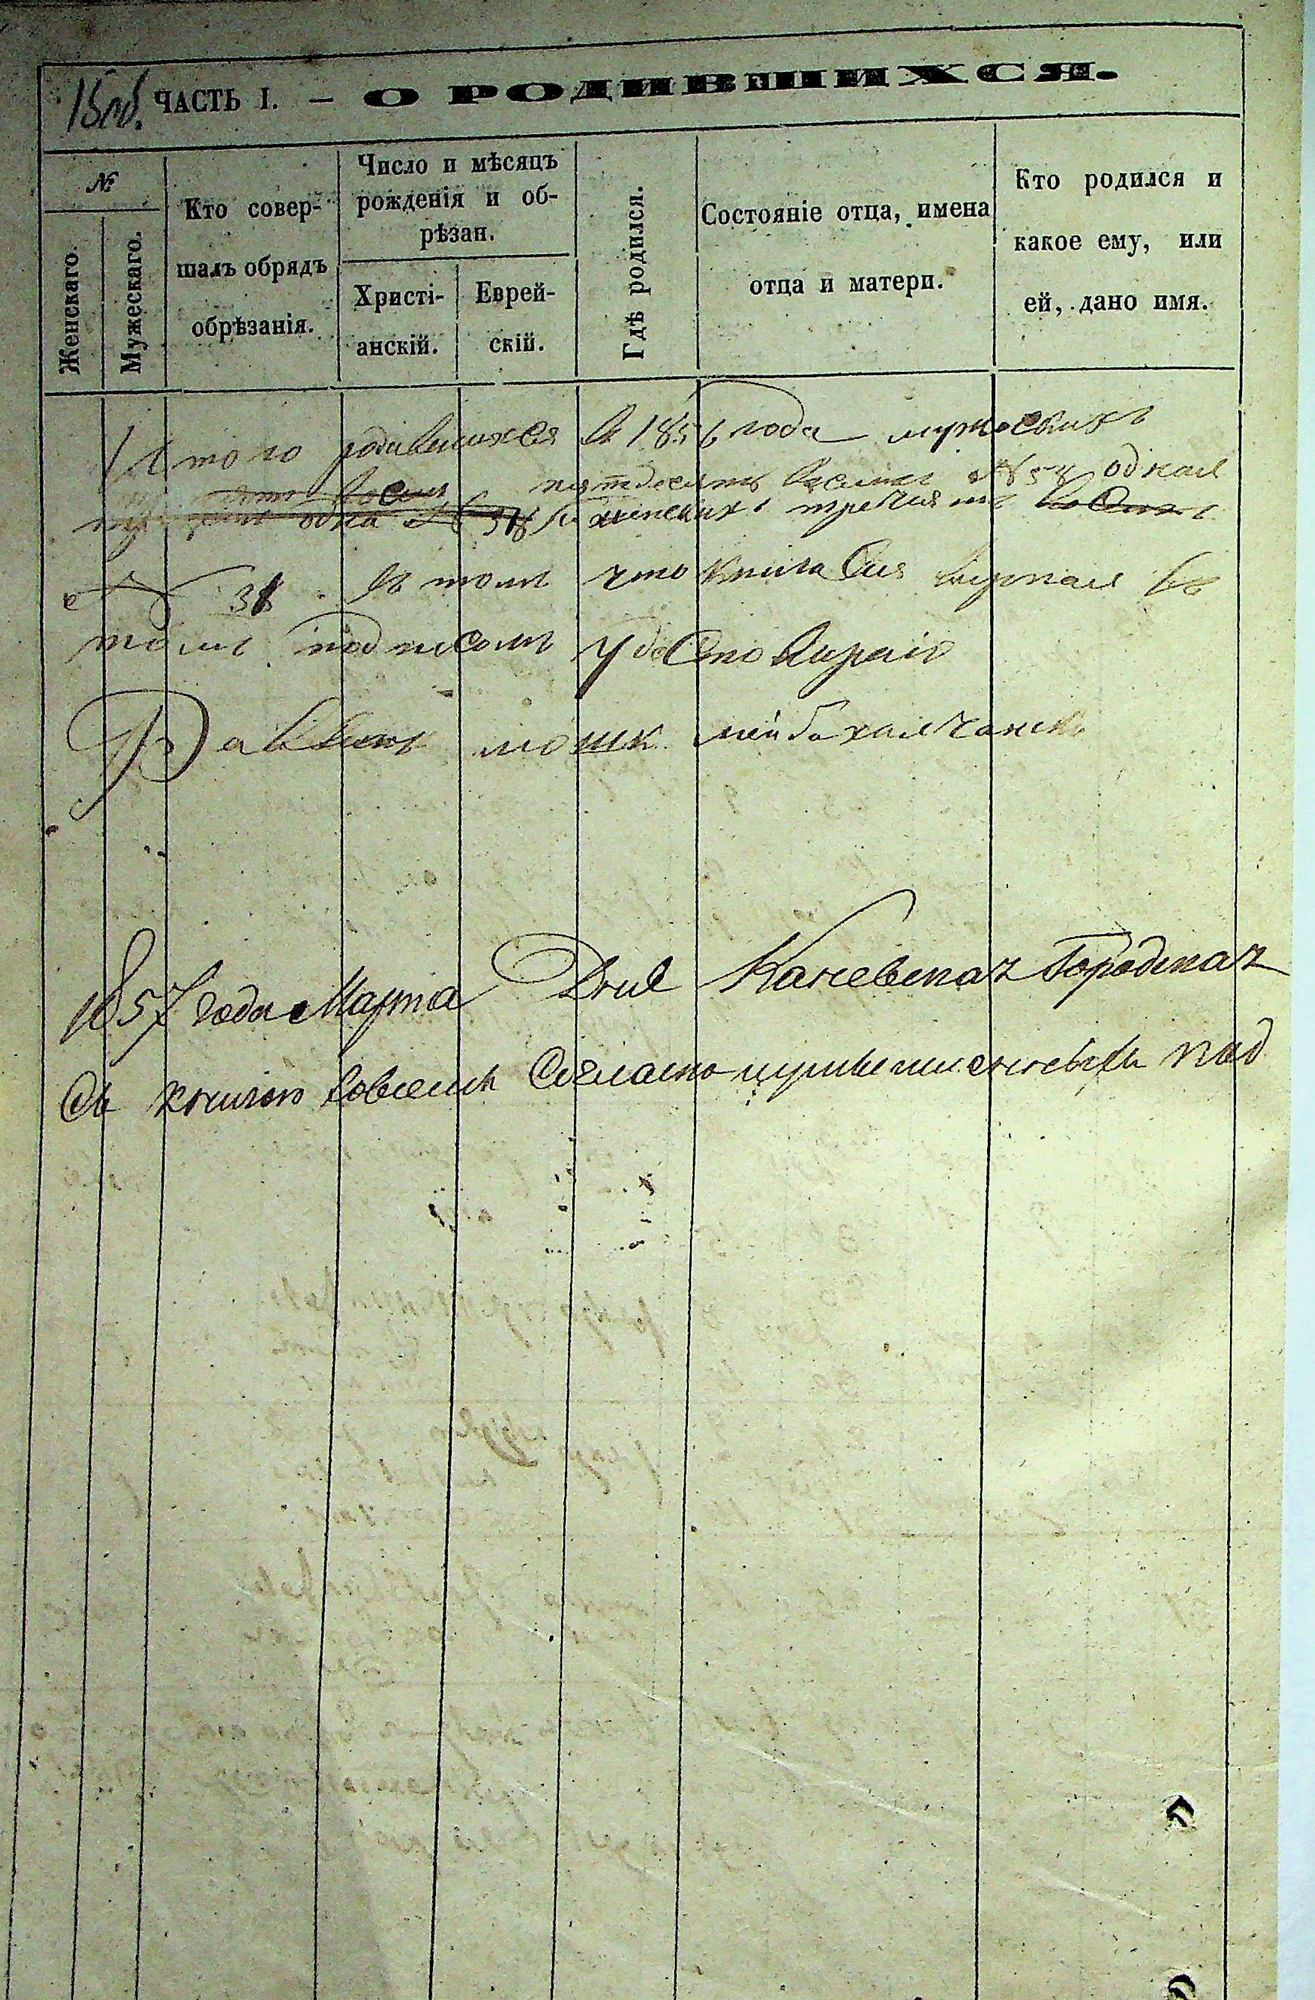 15об.
ЧАСТЬ I. — О РОДИВШИХСЯ.
№
Женскаго.
Мужескаго.
Кто совер-
шалъ обрядъ
обрѣзанія.
Число и мѣсяцъ
рожденія и об-
рѣзан.
Христі-
анскій.
Еврей-
скій.
Гдѣ родился.
Состояніе отца, имена
отца и матери.
Кто родился и
какое ему, или
ей, дано имя.
Итого родившихся в 1856 года мужескихъ
пятдесятъ восемь №58 одная
одна женскихъ тречцять
№ 31 въ томъ что книга сия вирная въ
томъ подписомъ удостовираю
Раввинъ мошк
1857 года Марта Дня Каневская Городская
Съ книгою совсемъ Согласно под